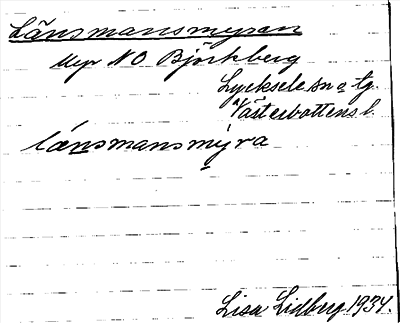 Länsmansmyran
Myr NO Björkberg
Lycksele sn o tg.
Västerbottens l.
länsmansmýra
Lisa Lidberg 1934.